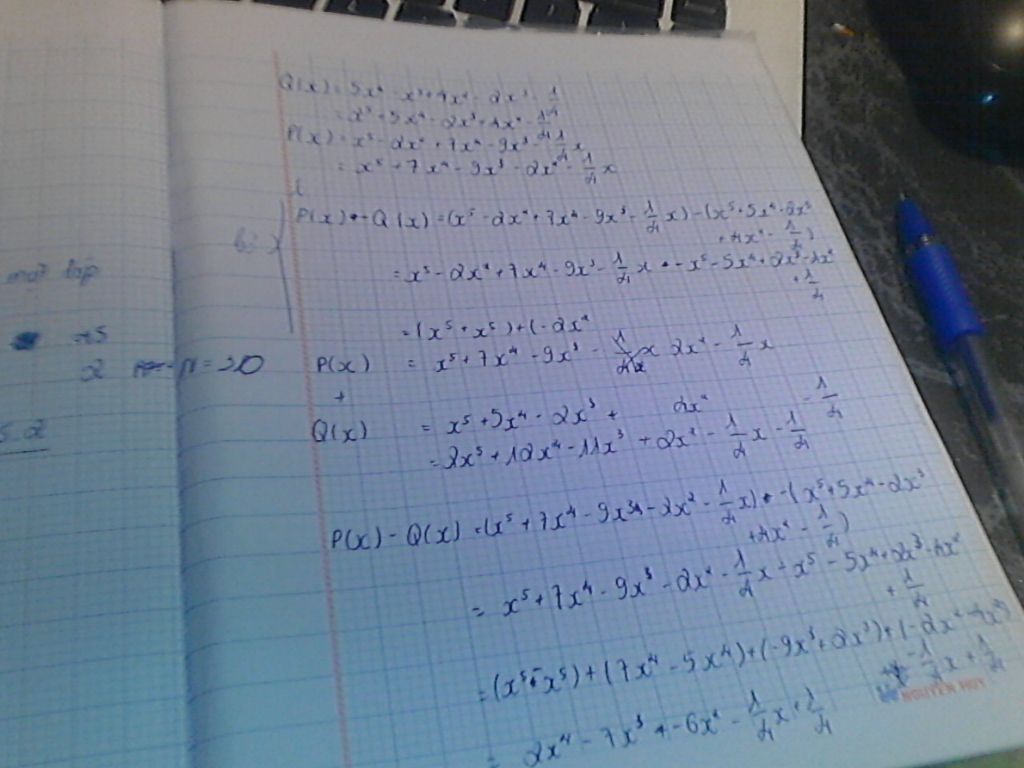 Q(x) = 5x⁴ - x⁵ + 4x² - 2x³ - 1/4
= x⁵ + 5x⁴ - 2x³ + 4x² - 1/4
P(x) = x⁵ - 2x² + 7x⁴ - 9x³ - 1/4 x
= x⁵ + 7x⁴ - 9x³ - 2x² - 1/4 x
P(x) - Q(x) = (x⁵ - 2x² + 7x⁴ - 9x³ - 1/4 x) - (x⁵ + 5x⁴ - 2x³
+ 4x² - 1/4)
= x⁵ - 2x² + 7x⁴ - 9x³ - 1/4 x - x⁵ - 5x⁴ + 2x³ - 4x²
+ 1/4
= (x⁵ + x⁵) + (-2x²
P(x) = x⁵ + 7x⁴ - 9x³ - 2x² - 1/4 x
+
Q(x) = x⁵ + 5x⁴ - 2x³ + 4x² - 1/4
= 2x⁵ + 12x⁴ - 11x³ + 2x² - 1/4 x - 1/4
P(x) - Q(x) = (x⁵ + 7x⁴ - 9x³ - 2x² - 1/4 x) - (x⁵ + 5x⁴ - 2x³
+ 4x² - 1/4)
= x⁵ + 7x⁴ - 9x³ - 2x² - 1/4 x - x⁵ - 5x⁴ + 2x³ - 4x²
+ 1/4
= (x⁵ - x⁵) + (7x⁴ - 5x⁴) + (-9x³ + 2x³) + (-2x² - 4x²)
- 1/4 x + 1/4
= 2x⁴ - 7x³ + -6x² - 1/4 x + 1/4
NGUYEN HUY